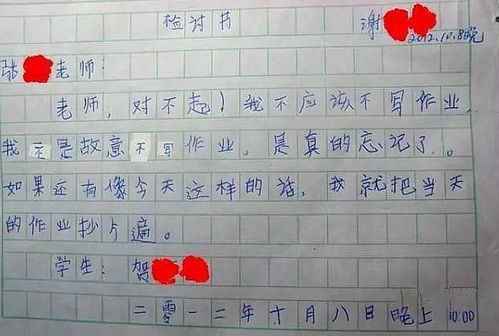 检讨书 谢
2012.10.8晚
老师:
老师,对不起!我不应该不写作业,
我不是故意不写作业,是真的忘记了。
如果还有像今天这样的话,我就把当天
的作业抄 遍。
学生:贺
二零一二年十月八日晚上10:00